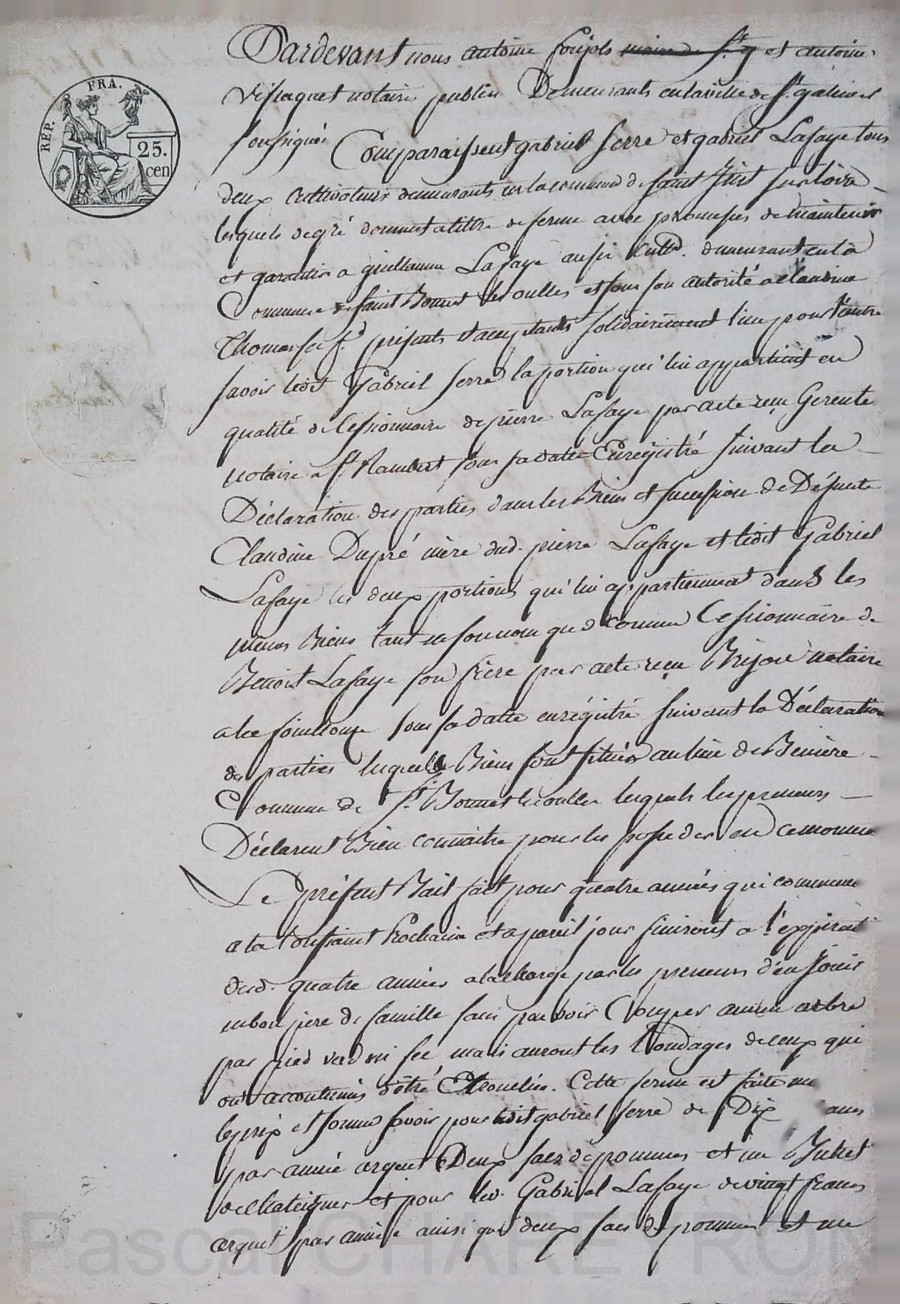 REP. FRA.
25.
cen
Pardevant nous antoine soujols maire de St. g et antoine
Vissaguet notaires publics Demeurants en la ville de St. galmier
soussignés
Comparaissent gabriel serre et gabriel Lafaye tous
deux cultivateurs demeurants en la commune de saint Just sur loire
lesquels de gré donnent a titre de ferme avec promesses de maintenir
et garantir a guillaume Lafaye aussi cultr. demeurant en la
Commune de saint Bonnet les oulles et sous son autorité a claudine
Thomas sa f. présents et acceptants solidairement l'un pour l'autre
savoir ledit Gabriel serre la portion qui lui appartient en
qualité de Cessionnaire de pierre Lafaye par acte reçu Gerente
notaire a St. Rambert sous sa datte Enregistré suivant la
Déclaration des parties dans les Biens et succession de Défunte
Claudine Dupré mère dud. pierre Lafaye et ledit Gabriel
Lafaye les deux portions qui lui appartiennent dans les
mêmes Biens tant en son nom que comme Cessionnaire de
Benoit Lafaye son frère par acte reçu Brijon notaire
a la fouillouse sous sa datte enregistré suivant la Déclaration
des parties lesquels Biens sont situés au lieu de
Commune de St. Bonnet les oulles lesquels les preneurs
Déclarent Bien connaitre pour les posseder en ce moment
Le présent Bail fait pour quatre années qui commence
a la Toussaint Prochaine et a pareil jour finiront a l'expirat
desd. quatre années a la charge par les preneurs d'en Jouir
en bon père de famille sans pouvoir Couper aucun arbre
par pied verd ni sec mais auront les Tondages de ceux qui
ont accoutumés d'être Etronchés. Cette ferme est faite au
le prix et somme savoir pour ledit gabriel serre de Dix ancs
par année argent Deux sacs de pommes et un Bichet
de chataignes et pour led. Gabriel Lafaye de vingt francs
argent par année ainsi que deux sacs de pommes et un
Pascal CHAREYRON